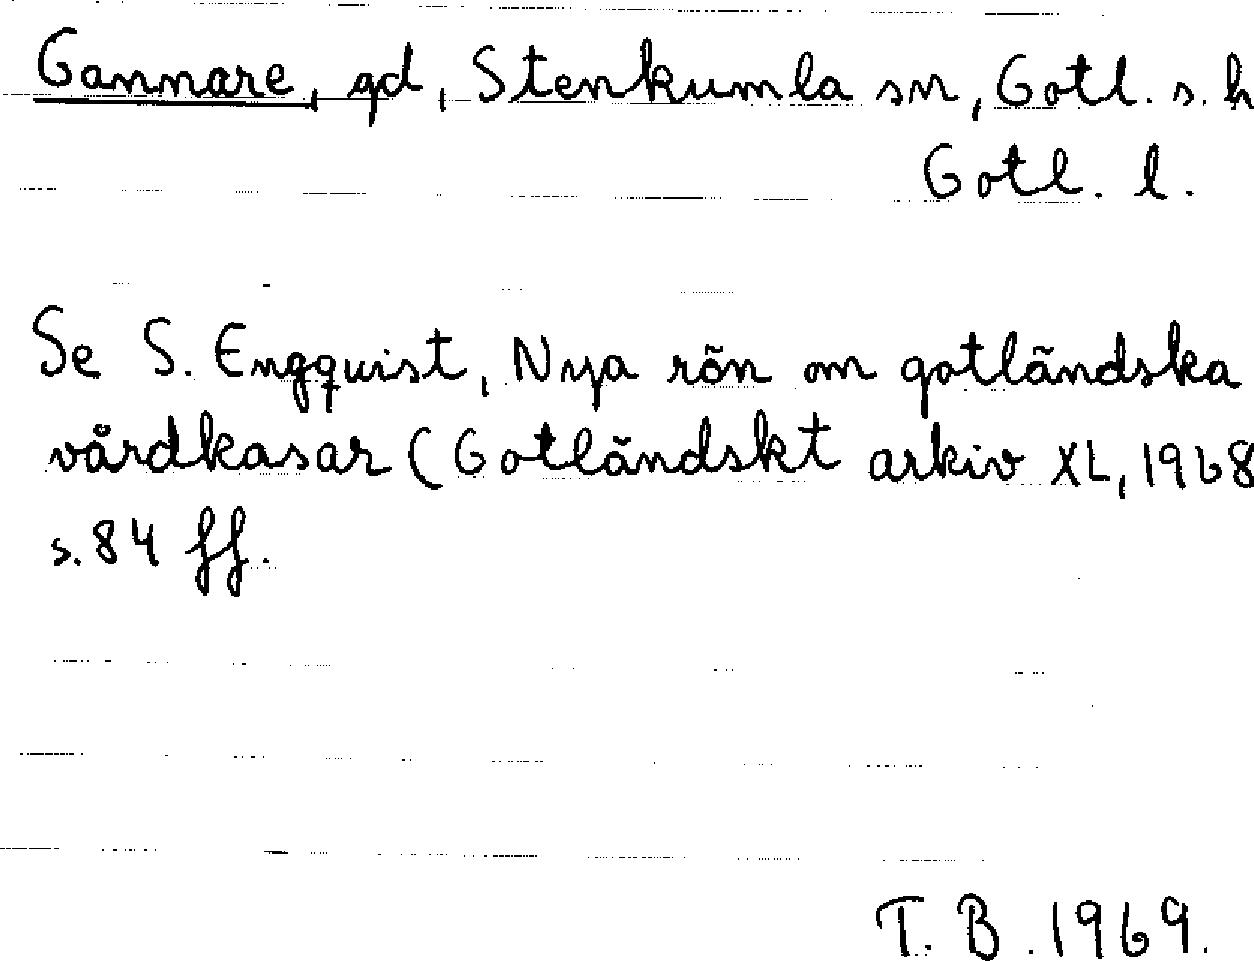 Gannare, gd, Stenkumla sn, Gotl. s. h
Gotl. l.
Se S. Engquist, Nya rön om gotländska
vårdkasar (Gotländskt arkiv XL, 1968
s. 84 ff.
T. B. 1969.